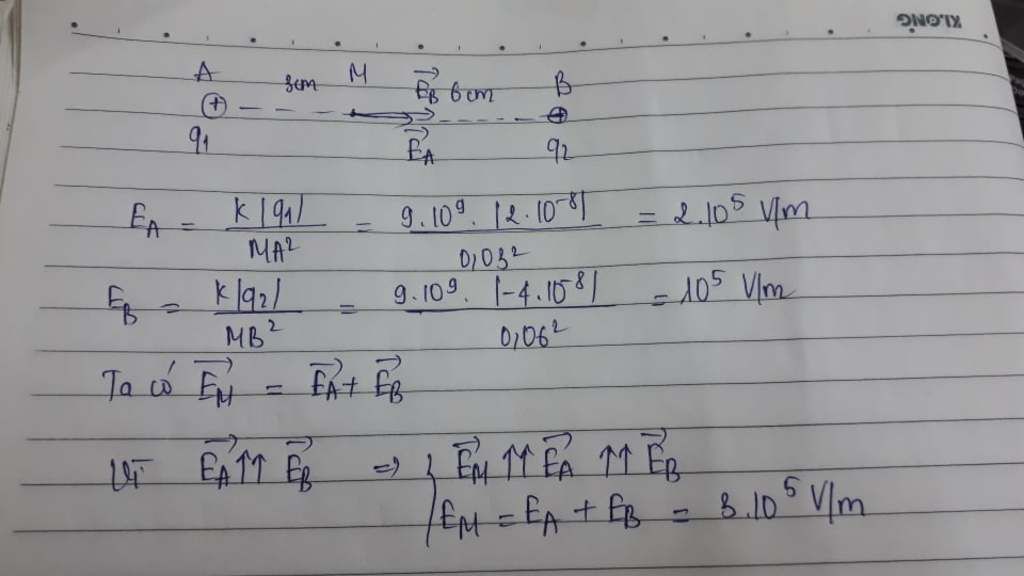 KLONG
A 3cm M E⃗_B 6cm B
⊕ ⊕
q₁ E⃗_A q₂
E_A = k|q₁| / MA² = 9.10⁹. |2.10⁻⁸| / 0,03² = 2.10⁵ V/m
E_B = k|q₂| / MB² = 9.10⁹. |-4.10⁻⁸| / 0,06² = 10⁵ V/m
Ta có E⃗_M = E⃗_A + E⃗_B
Vì E⃗_A ↑↑ E⃗_B => { E⃗_M ↑↑ E⃗_A ↑↑ E⃗_B
E_M = E_A + E_B = 3.10⁵ V/m